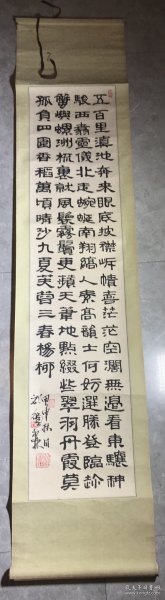 五百里滇池奔来眼底披襟岸幘喜茫茫空闊無邊看東驤神
駿西翥靈儀北走蜿蜒南翔縞人素高韻士何妨選勝登臨趁
蟹嶼螺洲梳裹就風鬟霧鬢更蘋天葦地點綴些翠羽丹霞莫
孤負四圍香稻萬頃晴沙九夏芙蓉三春楊柳
甲申秋月